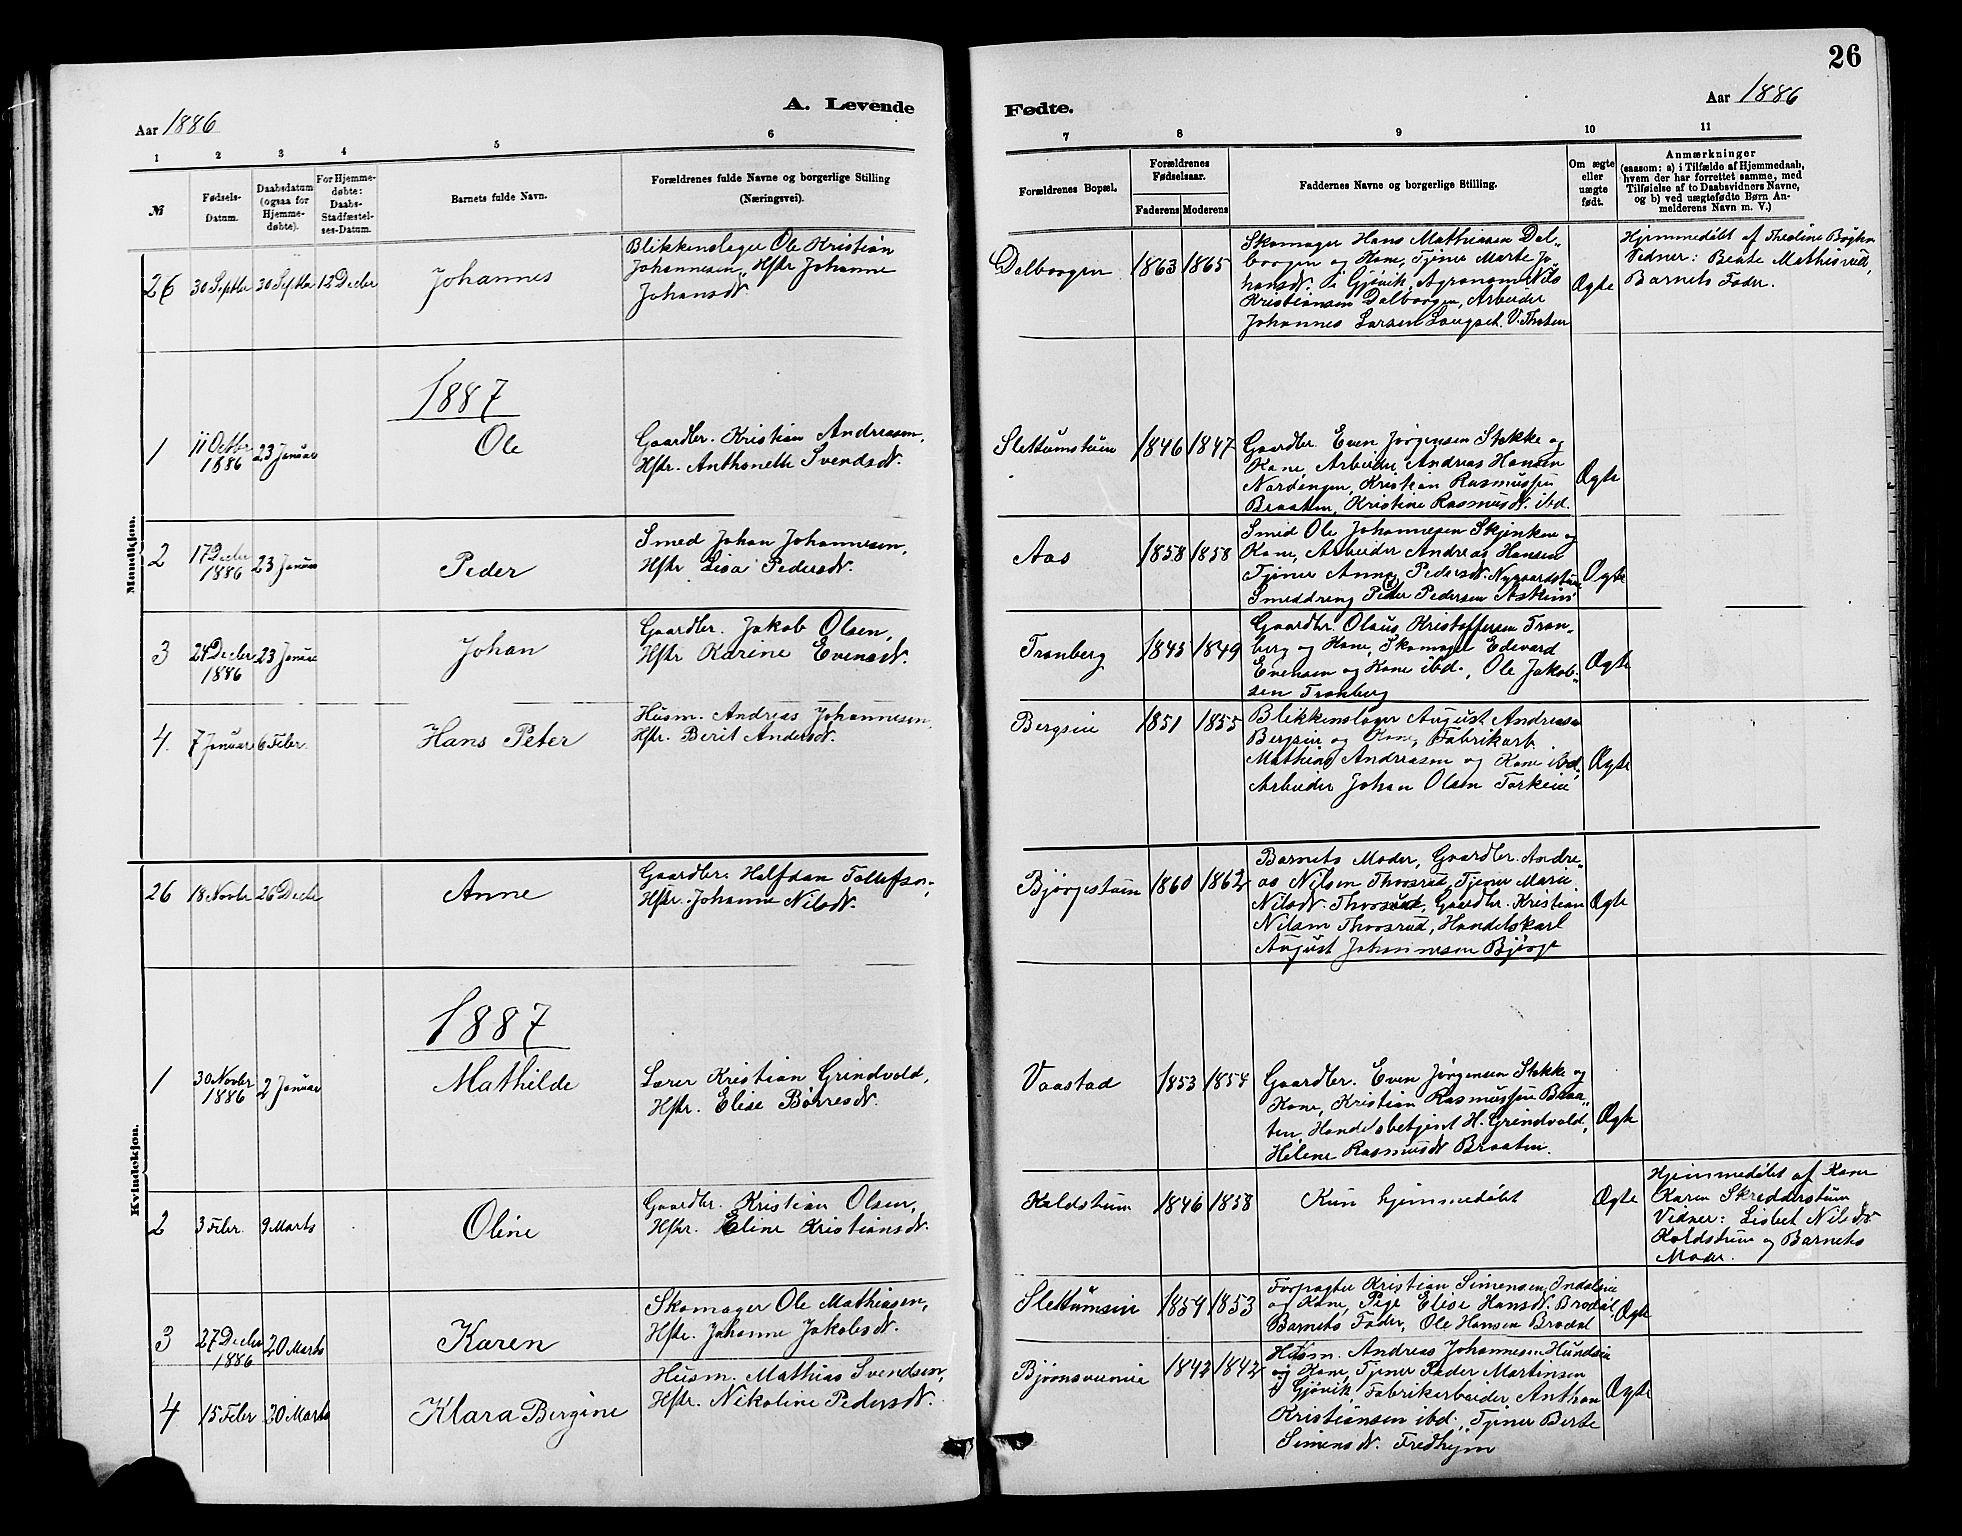 26
A. Levende
Fødte.
Aar 1886
Aar 1886
1 2 3 4 5 6
7 8 9 10 11
№
Fødsels-
Datum.
Daabsdatum
(ogsaa for
Hjemme-
døbte).
For Hjemme-
døbte:
Daabs-
Stadfæstel-
ses-Datum.
Barnets fulde Navn.
Forældrenes fulde Navne og borgerlige Stilling
(Næringsvei).
Forældrenes Bopæl.
Forældrenes
Fødselsaar.
Faderens Moderens
Faddernes Navne og borgerlige Stilling.
Om ægte
eller
uægte
født.
Anmærkninger
(saasom: a) i Tilfælde af Hjemmedaab,
hvem der har forrettet samme, med
Tilføielse af to Daabsvidners Navne,
og b) ved uægtefødte Børn An-
melderens Navn m. V.)
Mandkjøn.
26 30 Septbr 30 Septbr 12 Decbr Johannes
Blikkenslager Ole Kristian
Johannesen, Hstr Johanne
Johansdt.
Dalborgen 1863 1865
Skomager Hans Mathiasen Dal-
borgen og Kone, Tjener Marte Jo-
hansdt. i Gjøvik, Agronom Nils
Kristiansen Dalborgen, Arbeider
Johannes Larsen Laugset. V. Thoten
Ægte
Hjemmedøbt af Theoline
Vidner: Beate
Barnets Fader.
1887
1 11 Octbr 1886 23 Januar Ole
Gaardbr. Kristian Andreasen,
Hstr. Anthonette Svendsdt.
Slettumstuen 1846 1847
Gaardbr. Even Jørgensen Stekke og
Kone, Arbeider Andreas Hansen
Nordengen, Kristian Rasmussen
Braaten, Kristine Rasmusdt. ibd.
Ægte
2 17 Decbr 1886 23 Januar Peder
Smed Johan Johannesen,
Hstr Lisa Pedersdt.
Aas 1858 1858
Smed Ole Johannesen Skjenken og
Kone, Arbeider Andreas Hansen
Tjener Anna Pedersdt. Nygaardstuen
Smeddreng Peder Pedersen
Ægte
3 24 Decbr 1886 23 Januar Johan
Gaardbr. Jakob Olsen,
Hstr Karine Evensdt.
Tranberg 1845 1849
Gaardbr. Olaus Kristoffersen Tran-
berg og Kone, Skomager Edevard
Evensen og Kone ibd., Ole Jakob-
sen Tranberg
Ægte
4. 7 Januar 6 Febr. Hans Peter
Husm. Andreas Johannesen,
Hstr. Berit Andersdt.
Bergseie 1851 1855
Blikkenslager August Andreasen
Bergseie og Kone, Fabrikarb.
Mathias Andreasen og Kone ibd.,
Arbeider Johan Olsen
Ægte
Kvindekjøn.
26 18 Novbr 26 Decbr Anne
Gaardbr. Halfdan Tollefsen,
Hstr. Johanne Nilsdt.
Bjørgestuen 1860 1862
Barnets Moder, Gaardbr. Andre-
as Nilsen Thorsrud, Tjener Marie
Nilsdt Thorsrud, Gaardbr. Kristian
Nilsen Thorsrud, Handelskarl
August Johannesen Bjørge
Ægte
1887
1 30 Novbr 1886 2 Januar Mathilde
Lærer Kristian Grindvold,
Hstr. Elise Børresdt.
Vaastad 1853 1854
Gaardbr. Even Jørgensen Stekke og
Kone, Kristian Rasmussen Braa-
ten, Handelsbetjent H. Grindvold,
Helene Rasmusdt Braaten.
Ægte
2 3 Febr. 9 Marts Oline
Gaardbr. Kristian Olsen,
Hstr. Eline Kristiansdt.
Koldstuen 1846 1858
Kun hjemmedøbt
Ægte
Hjemmedøbt af Kone
Karen Skredderstuen
Vidner: Lisbet Nilsdt.
Koldstuen og Barnets
Moder.
3 27 Decbr 1886 20 Marts Karen
Skomager Ole Mathiasen,
Hstr. Johanne Jakobsdt.
Slettumseie 1854 1853
Forpagter Kristian Simensen
og Kone, Pige Elise Hansdt. Brodal
Barnets Fader, Ole Hansen Brodal
Ægte
4 15 Febr 20 Marts Klara Bergine
Husm. Mathias Svendsen,
Hstr. Nikoline Pedersdt.
1842 1842
Husm. Andreas Johannesen Hundseie
og Kone, Tjener Peder Martinsen
Gjøvik, Fabrikarbeider, Anthon
Kristiansen ibd., Tjener Berte
Simensdt. Fredhejm
Ægte